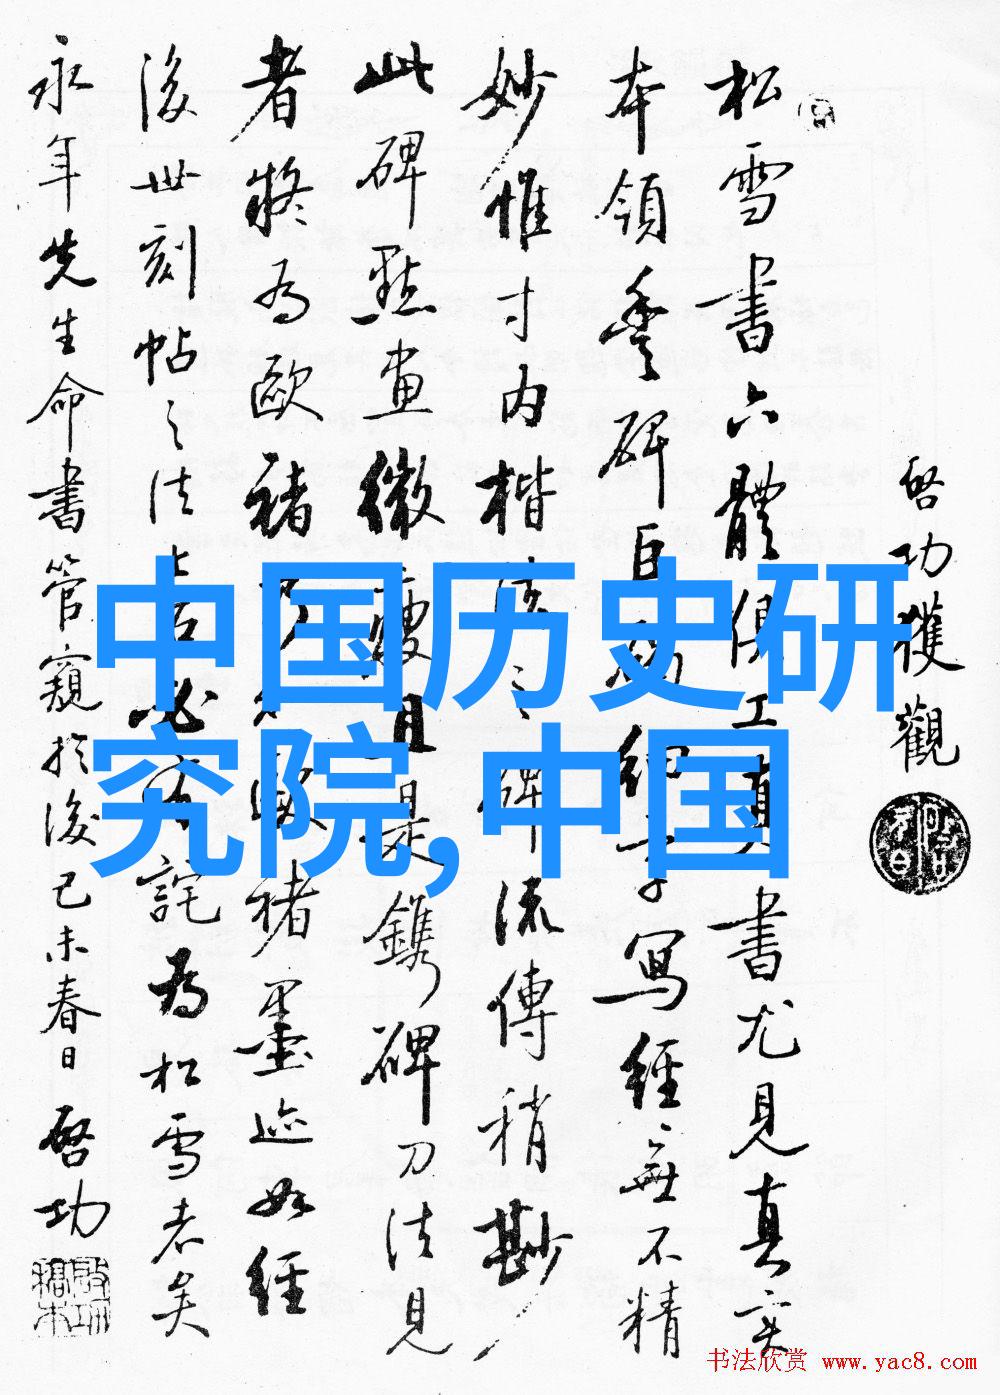 啓功獲觀
松雪書六體俱工真書尤見真實
本領豐碑巨寫經無不精
妙惟寸内楷之碑流傳稍尠
此碑點畫微瘦且是鐫碑刀法見
者疑為歐褚褚墨迹如經
後世刻帖之法上石必詫為松雪者矣
永年先生命書管窺於後己未春日啓功
中国历史研
究院,中国
书法欣赏 www.yac8.com